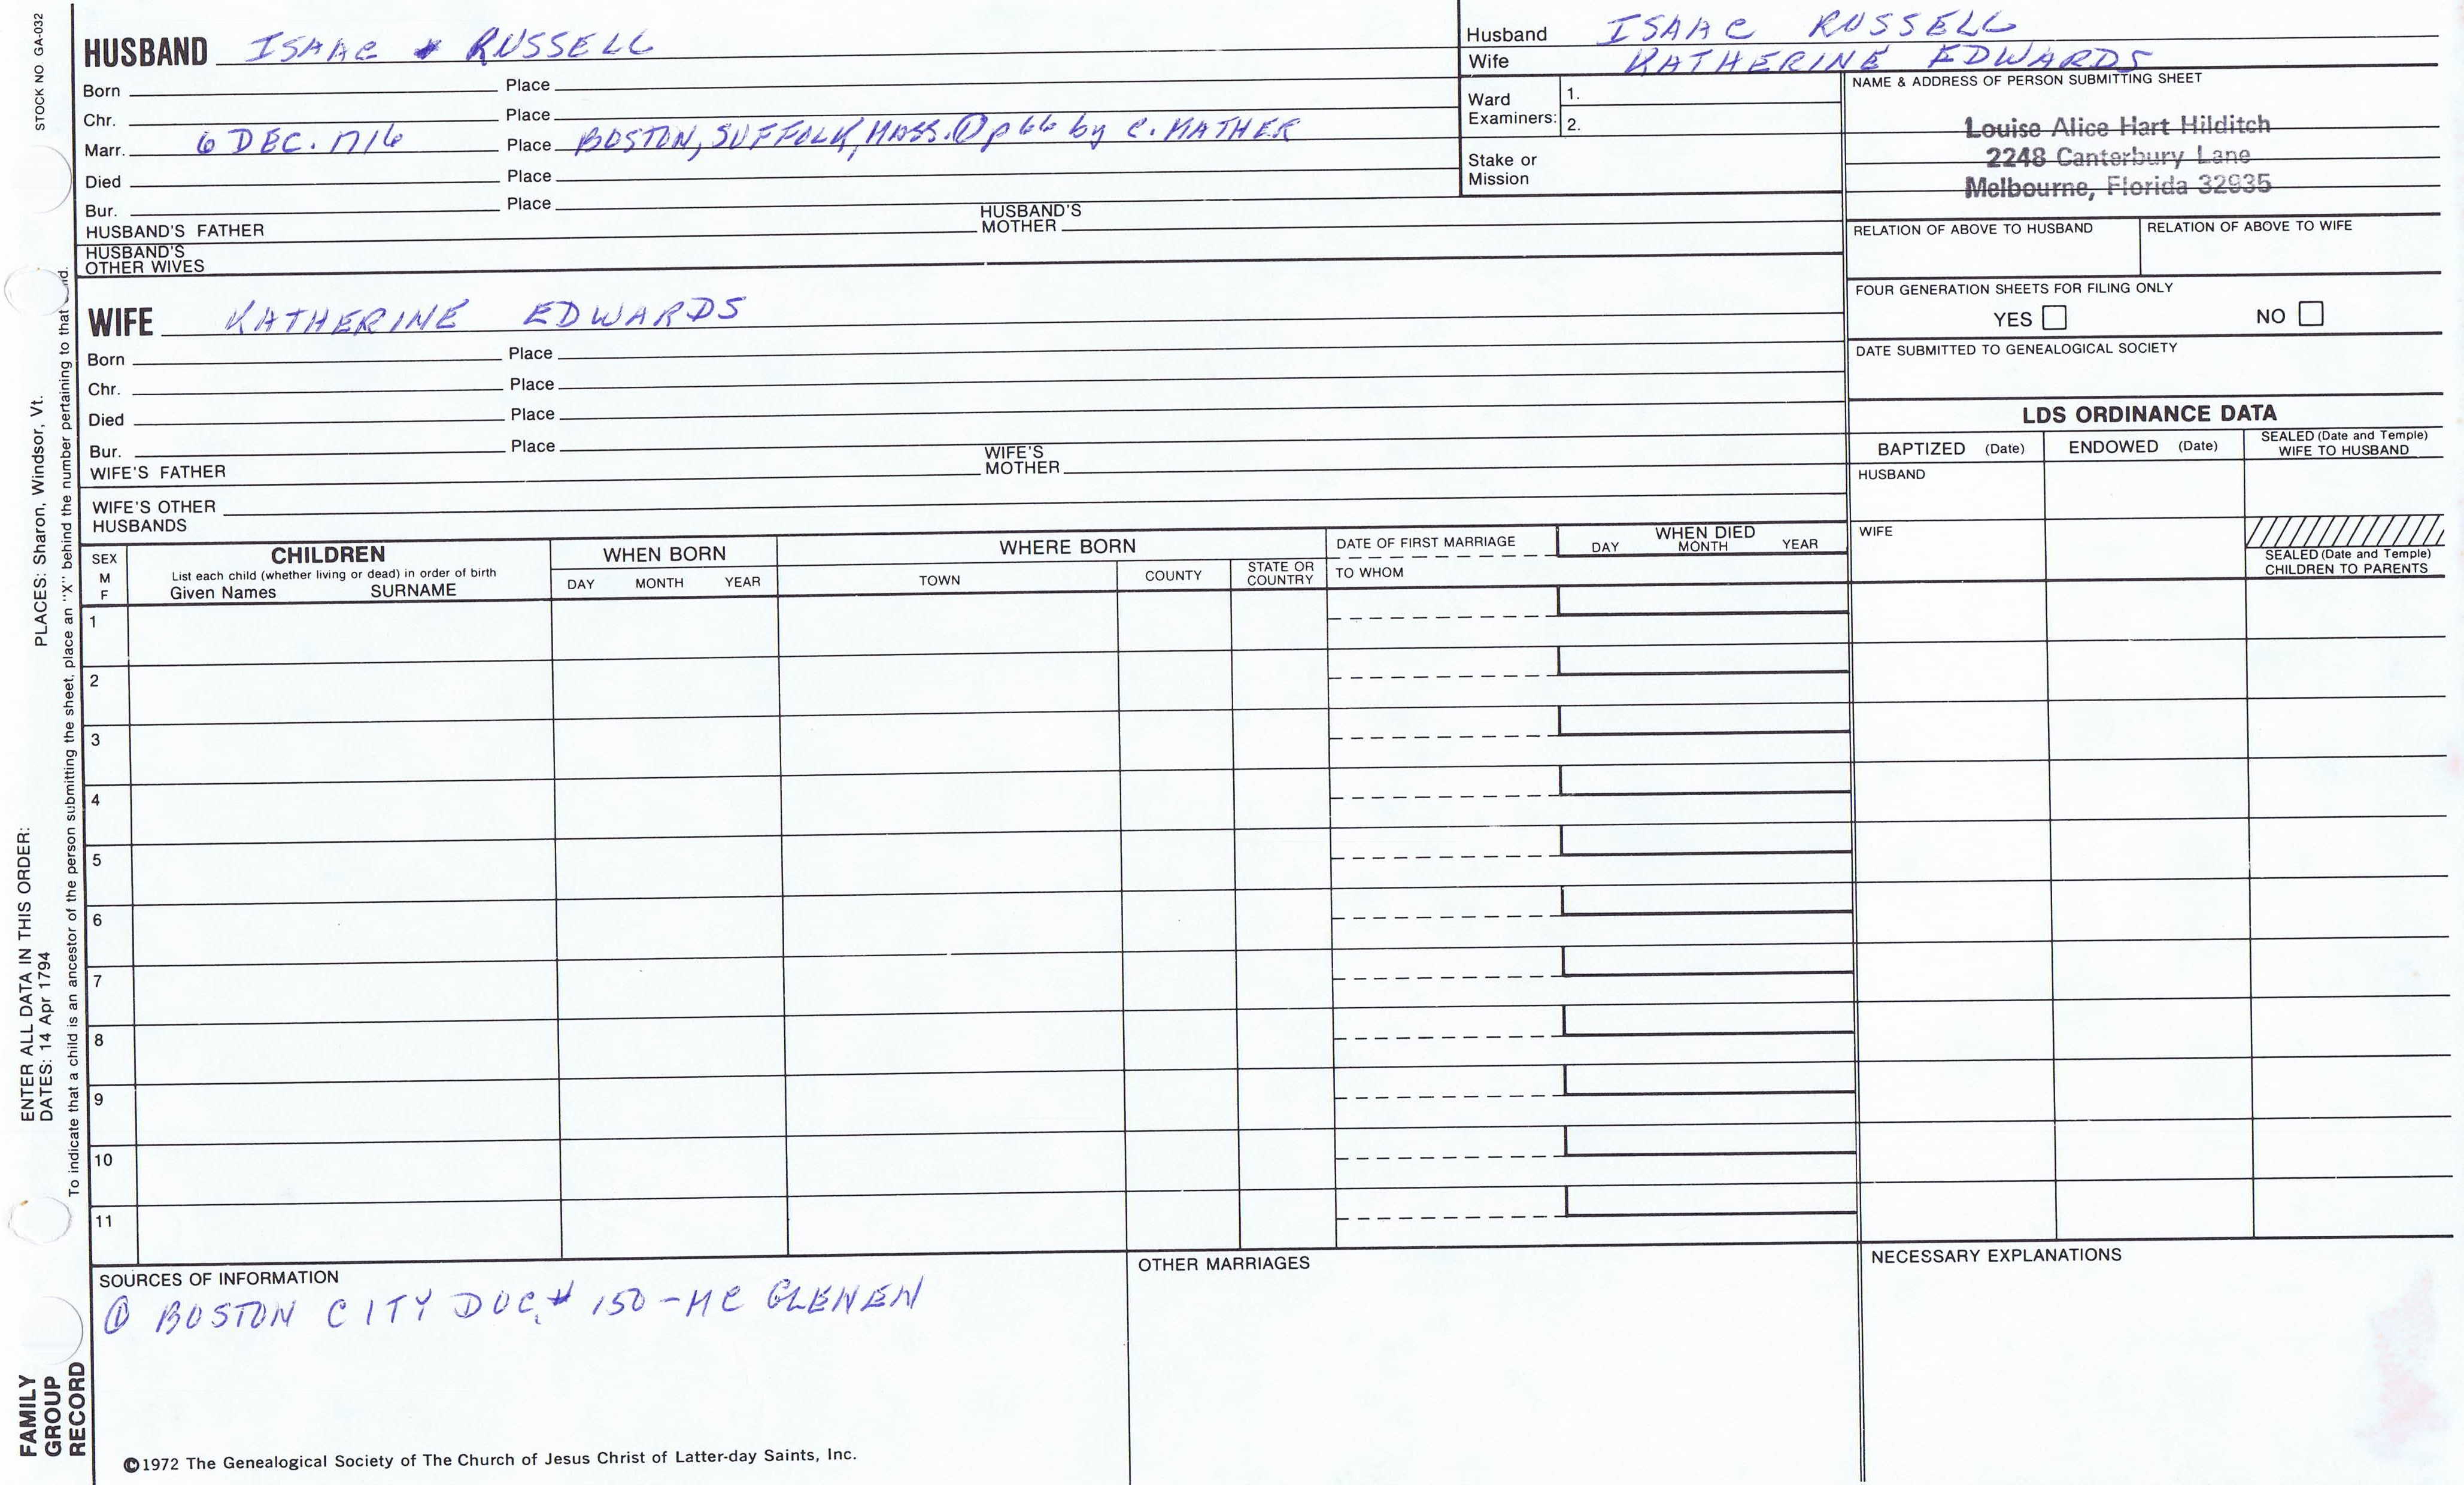 STOCK NO GA-032
HUSBAND ISAAC RUSSELL
Born Place
Chr. Place
Marr. 6 DEC. 1716 Place BOSTON, SUFFOLK, MASS. ① p 66 by C. MATHER
Died Place
Bur. Place
HUSBAND'S FATHER HUSBAND'S MOTHER
HUSBAND'S OTHER WIVES
Husband ISAAC RUSSELL
Wife KATHERINE EDWARDS
Ward Examiners: 1.
2.
Stake or Mission
NAME & ADDRESS OF PERSON SUBMITTING SHEET
Louise Alice Hart Hilditch
2248 Canterbury Lane
Melbourne, Florida 32935
RELATION OF ABOVE TO HUSBAND RELATION OF ABOVE TO WIFE
FOUR GENERATION SHEETS FOR FILING ONLY
YES NO
DATE SUBMITTED TO GENEALOGICAL SOCIETY
WIFE KATHERINE EDWARDS
Born Place
Chr. Place
Died Place
Bur. Place
WIFE'S FATHER WIFE'S MOTHER
WIFE'S OTHER HUSBANDS
LDS ORDINANCE DATA
BAPTIZED (Date) ENDOWED (Date) SEALED (Date and Temple) WIFE TO HUSBAND
HUSBAND
WIFE
SEALED (Date and Temple)
CHILDREN TO PARENTS
SEX M F
CHILDREN
List each child (whether living or dead) in order of birth
Given Names SURNAME
WHEN BORN
DAY MONTH YEAR
WHERE BORN
TOWN COUNTY STATE OR COUNTRY
DATE OF FIRST MARRIAGE
TO WHOM
WHEN DIED
DAY MONTH YEAR
1
2
3
4
5
6
7
8
9
10
11
SOURCES OF INFORMATION
① BOSTON CITY DOC. # 150 - MC GLENEN
OTHER MARRIAGES
NECESSARY EXPLANATIONS
©1972 The Genealogical Society of The Church of Jesus Christ of Latter-day Saints, Inc.
FAMILY
GROUP
RECORD
ENTER ALL DATA IN THIS ORDER:
DATES: 14 Apr 1794 PLACES: Sharon, Windsor, Vt.
To indicate that a child is an ancestor of the person submitting the sheet, place an "X" behind the number pertaining to that